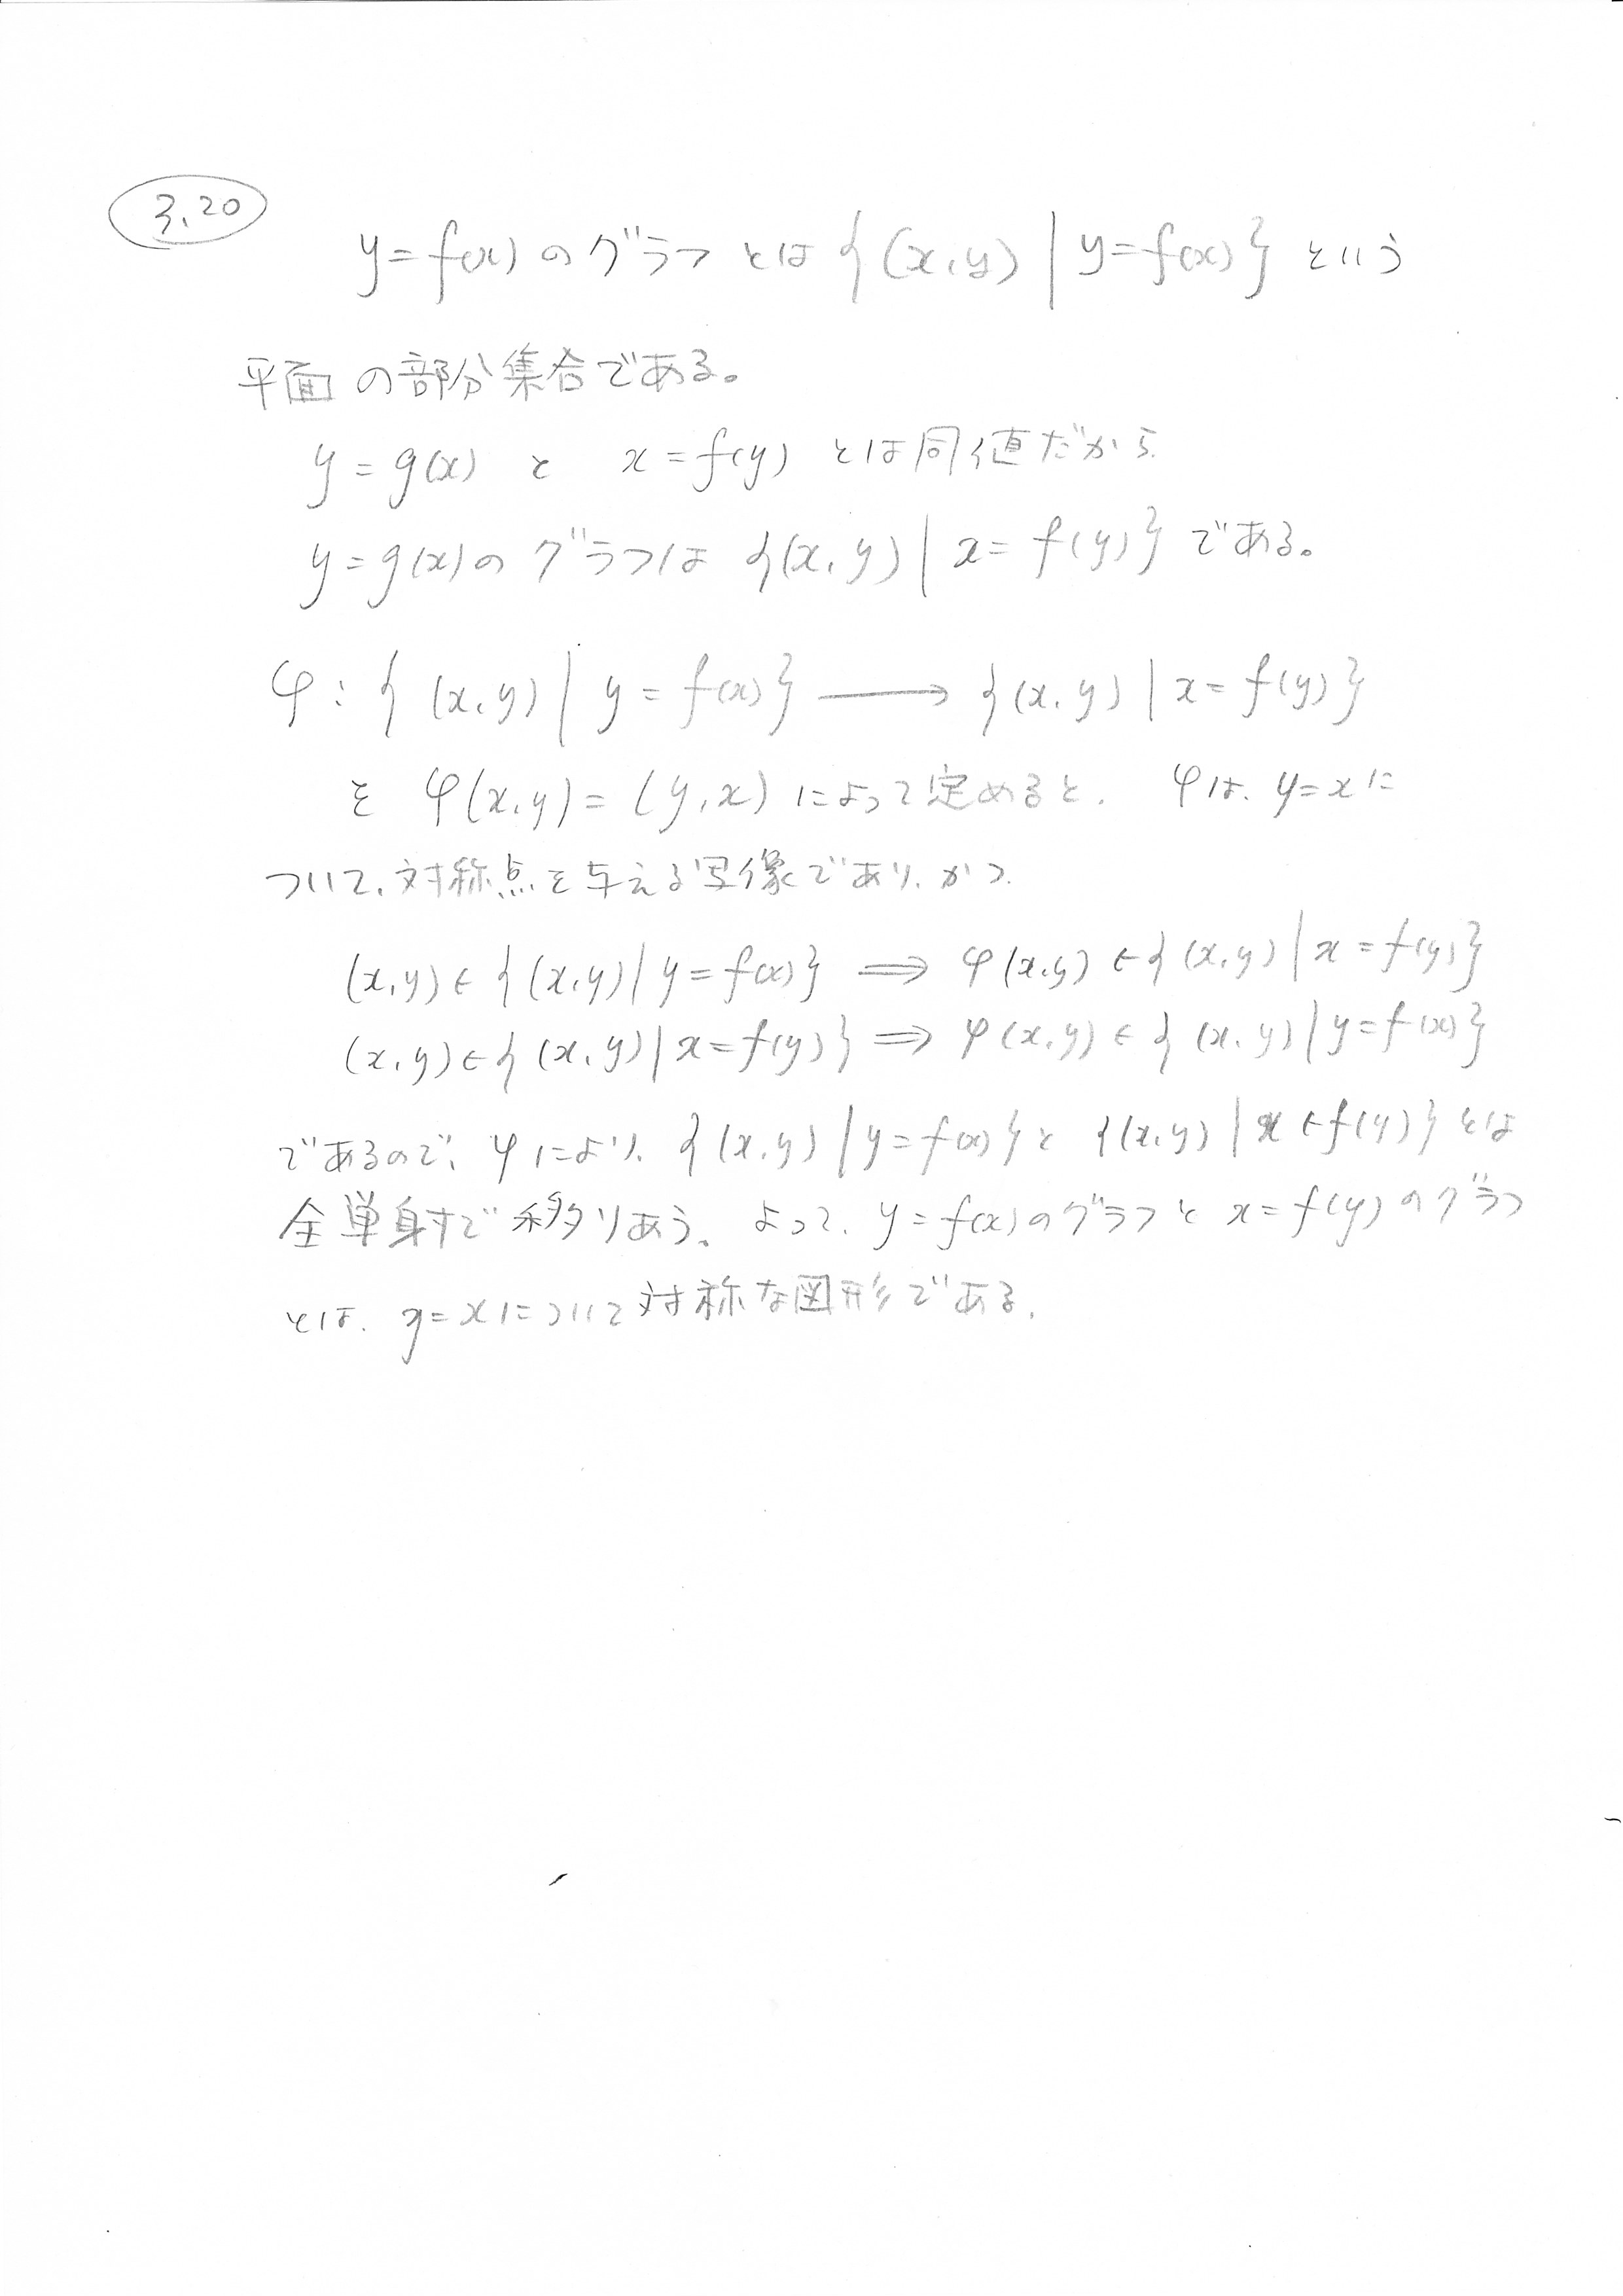 3.20
y=f(x)のグラフとは{(x,y)|y=f(x)}という
平面の部分集合である。
y=g(x) と x=f(y) とは同値だから、
y=g(x)のグラフは {(x,y)|x=f(y)}である。
φ:{(x,y)|y=f(x)}⟶{(x,y)|x=f(y)}
を φ(x,y)=(y,x)によって定めると、φは、y=xに
ついて、対称点を与える写像であり、かつ、
(x,y)∈{(x,y)|y=f(x)} ⟹ φ(x,y)∈{(x,y)|x=f(y)}
(x,y)∈{(x,y)|x=f(y)} ⟹ φ(x,y)∈{(x,y)|y=f(x)}
であるので、φにより、{(x,y)|y=f(x)}と{(x,y)|x=f(y)}とは
全単射で移りあう。よって、y=f(x)のグラフとx=f(y)のグラフ
とは、y=xについて対称な図形である。